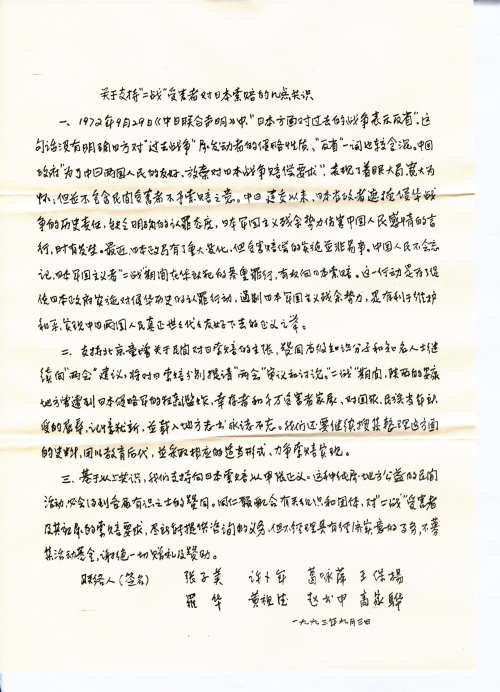 关于支持“二战”受害者对日本索赔的几点共识
一、1972年9月29日《中日联合声明》中,“日本方面对过去的战争表示反省”。这
句话没有明确日方对“过去战争”所发动者的侵略性质,“反省”一词也较含混。中国
政府“为了中日两国人民的友好,放弃对日本战争赔偿要求”,表现了着眼大局,宽大为
怀,但并不包含民间受害者不予索赔之意。中日建交以来,日本当政者遮掩侵华战
争的历史责任,缺乏明确的认罪态度,日本军国主义残余势力伤害中国人民感情的言
行,时有发生。最近,日本政局有了重大变化,但受害赔偿的实施并非易事。中国人民不会忘
记,日本军国主义者“二战”期间在华犯的严重罪行,有权向日本索赔。这一行动是为了促
使日本政府实施对侵华历史的认罪行动,遏制日本军国主义残余势力,是有利于维护
和平,实现中日两国人民真正世世代代友好下去的正义之举。
二、支持北京童增关于民间对日索赔的主张,赞同高级知识分子和知名人士继
续向“两会”建议,将对日索赔分别提请“两会”审议和讨论。“二战”期间,陕西的某些
地方曾遭到日本侵略军的轰炸,幸存者和千万受害者家属,对国耻、民族者
受的屈辱,记忆犹新,并载入地方志书永诗不忘。我们还要继续搜集整理这方面
的史料,用以教育后代,并采取相应的适当形式,力争索赔实现。
三、基于以上共识,我们支持向日本索赔以申张正义。这种纯属地方公益的民间
活动,必会得到各届有识之士的赞同。同仁愿配合有关组织和团体,对“二战”受害者
及其亲属的索赔要求,尽到能提供咨询的义务,但不经理具有经济实意的事务,不募
集活动基金,谢绝一切赠礼及赞助。
联络人(签名) 张子美 许卜年 葛咏萍 王俊扬
罗华 黄祖 赵书申 高家骅
一九九三年九月三日